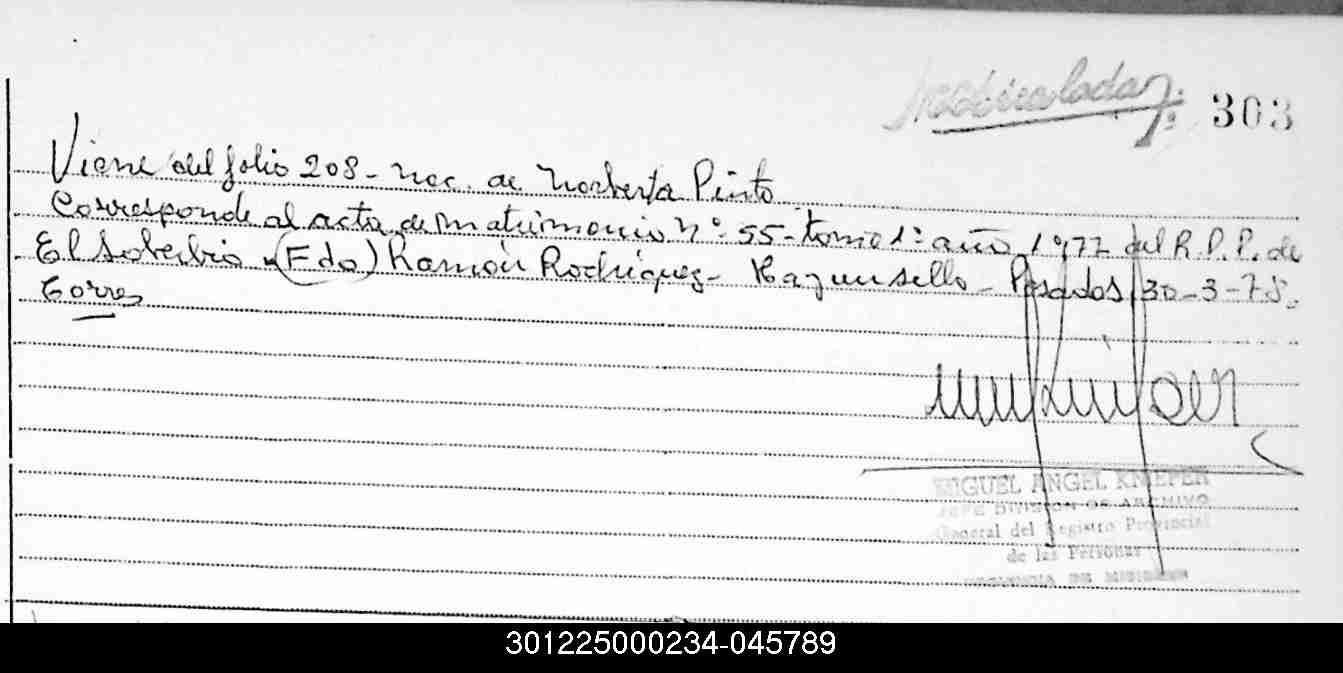 303
Viene del folio 208 - Nac. de Norberta Pinto
Corresponde al acta de matrimonio nº 55 - tomo 1º año 1977 del R.P.P. de
El Soberbio - (Fdo) Ramón Rodríguez - Hay un sello - Posadas, 30-3-78.
Torres
MIGUEL ANGEL KNIEPER
JEFE DIVISION DE ARCHIVO
General del Registro Provincial
de las Personas
PROVINCIA DE MISIONES
301225000234-045789